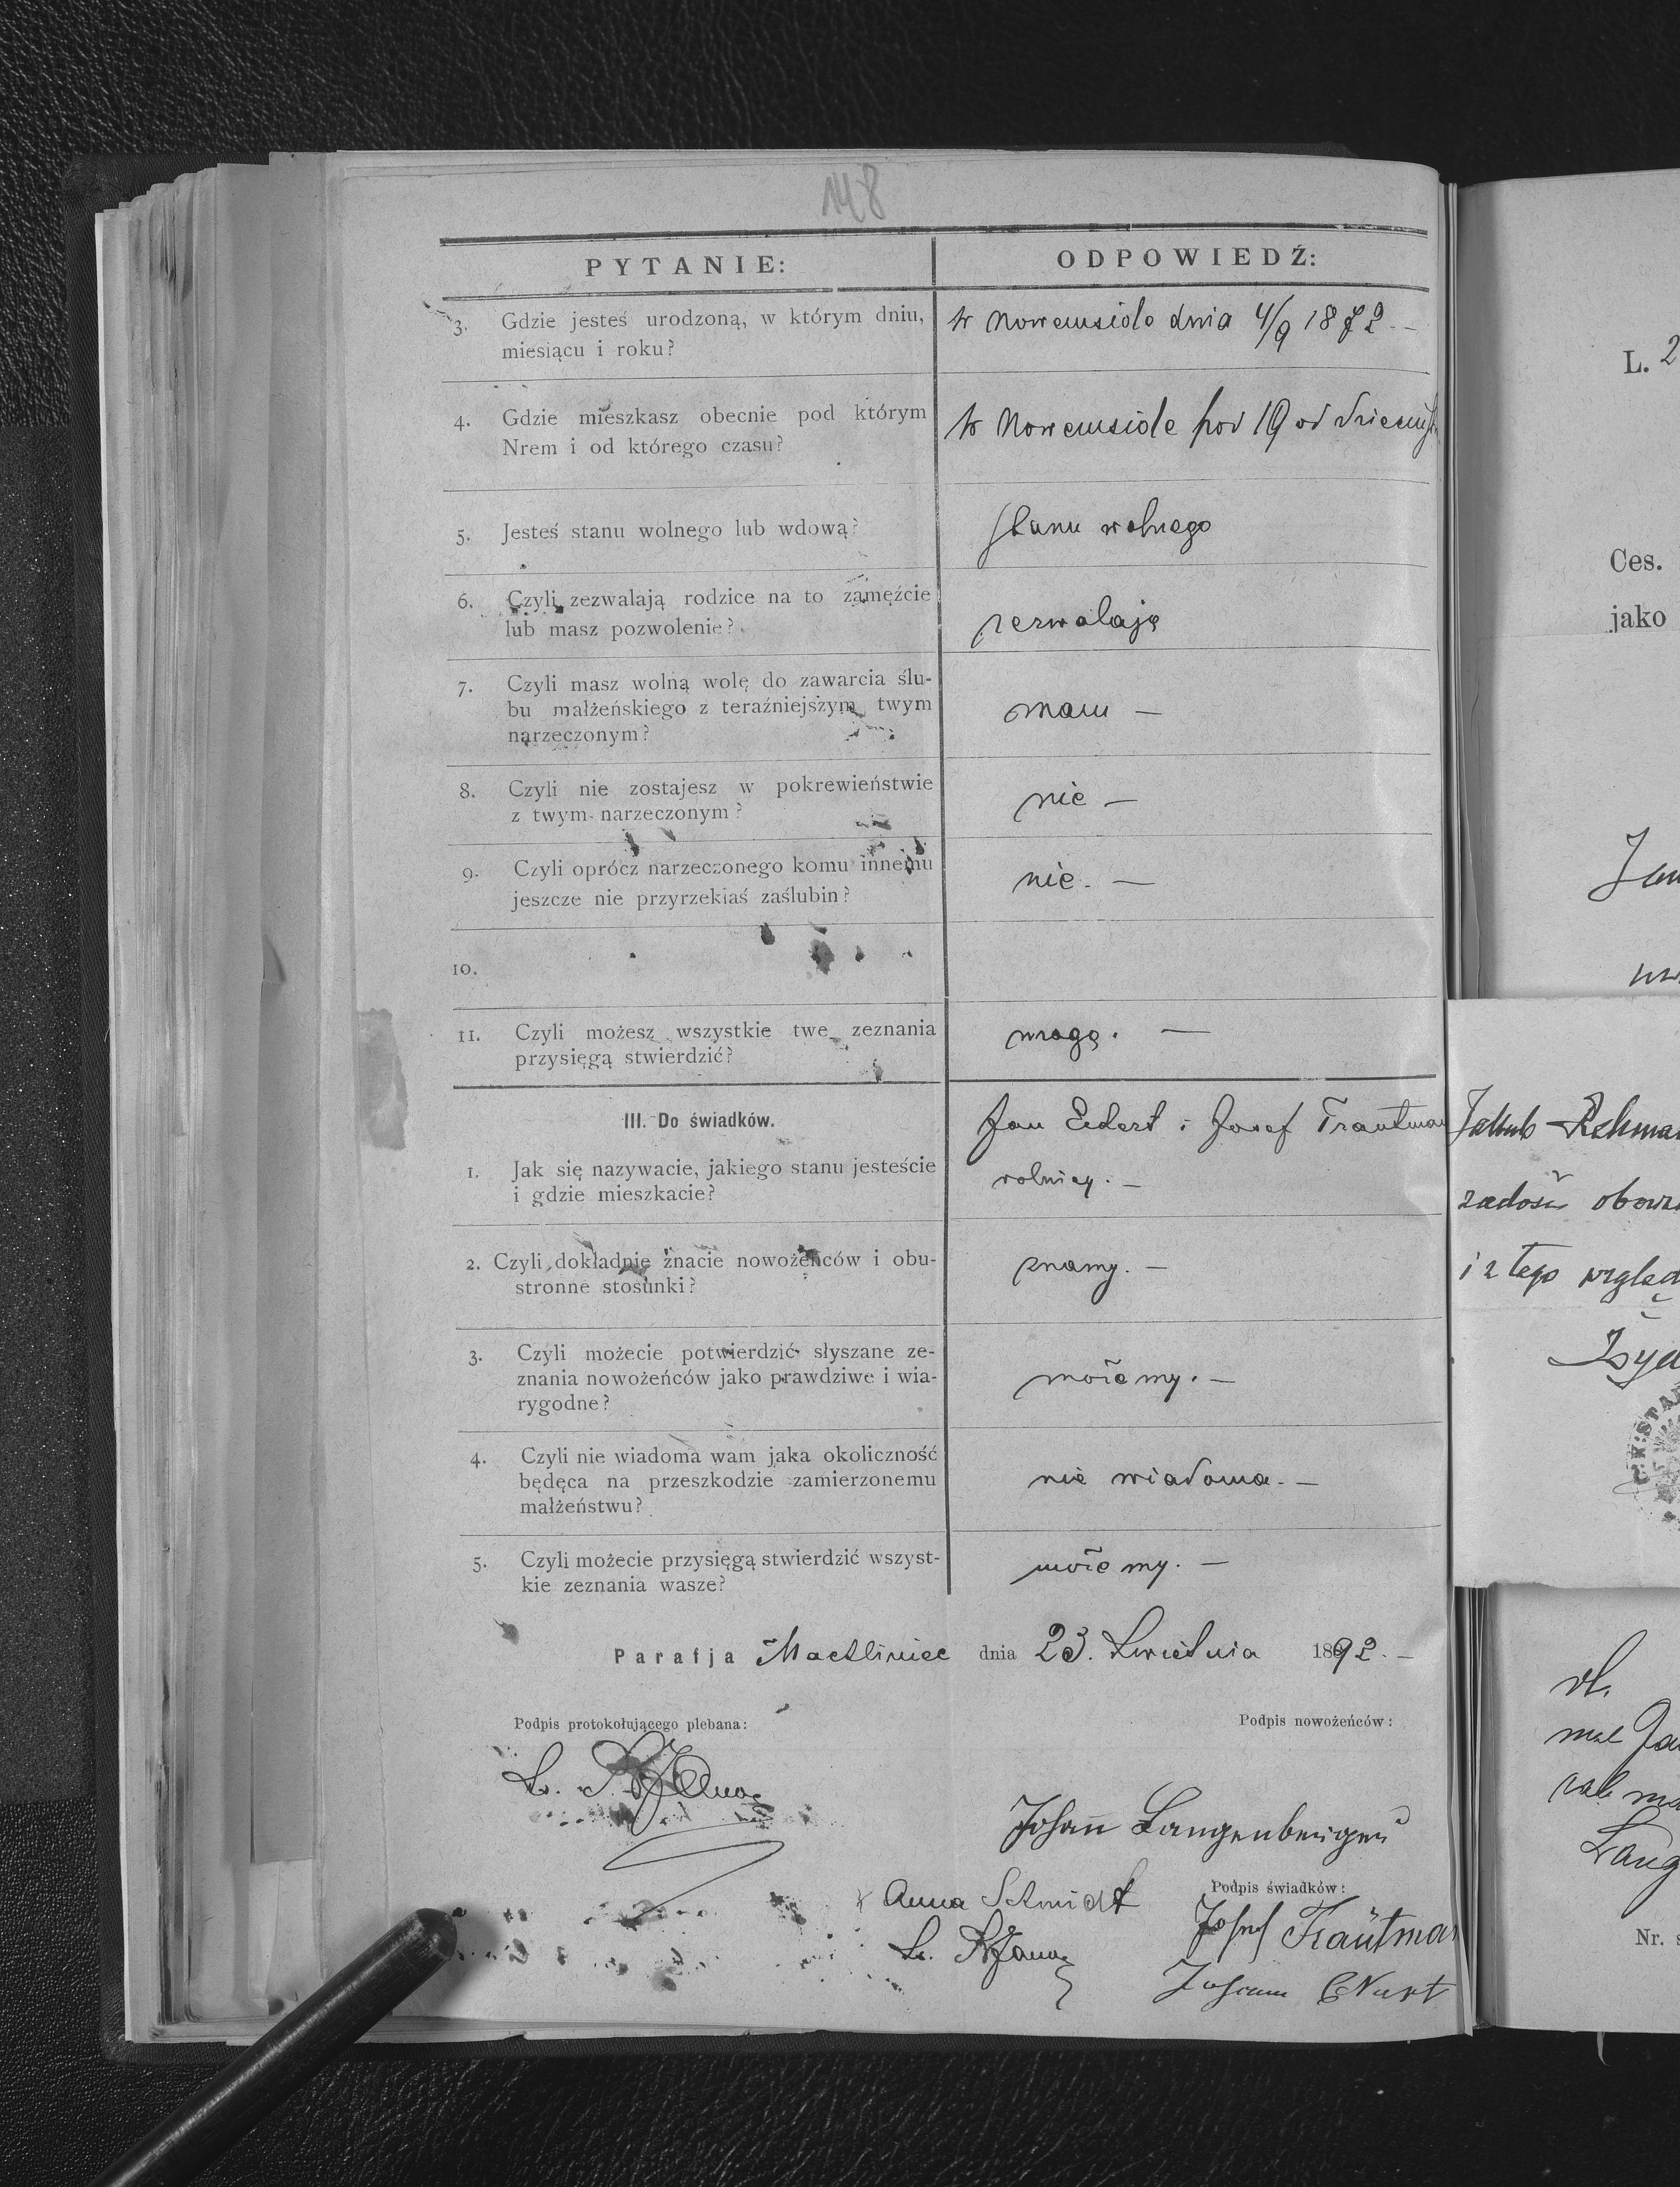 148
PYTANIE: ODPOWIEDŹ:
3. Gdzie jesteś urodzoną, w którym dniu,
miesiącu i roku?
w Nowemsiole dnia 4/9 1872 —
4. Gdzie mieszkasz obecnie pod którym
Nrem i od którego czasu?
w Nowemsiole pod 19 od
5. Jesteś stanu wolnego lub wdową?
stanu wolnego
6. Czyli zezwalają rodzice na to zamęźcie
lub masz pozwolenie?
zezwalają
7. Czyli masz wolną wolę do zawarcia ślu-
bu małżeńskiego z teraźniejszym twym
narzeczonym?
mam —
8. Czyli nie zostajesz w pokrewieństwie
z twym narzeczonym?
nie —
9. Czyli oprócz narzeczonego komu innemu
jeszcze nie przyrzekłaś zaślubin?
nie. —
10.
11. Czyli możesz wszystkie twe zeznania
przysięgą stwierdzić?
mogę. —
III. Do świadków.
Jan Eckert i Josef Trautman
1. Jak się nazywacie, jakiego stanu jesteście
i gdzie mieszkacie?
rolnicy. —
2. Czyli dokładnie znacie nowożeńców i obu-
stronne stosunki?
znamy. —
3. Czyli możecie potwierdzić słyszane ze-
znania nowożeńców jako prawdziwe i wia-
rygodne?
możemy. —
4. Czyli nie wiadoma wam jaka okoliczność
będęca na przeszkodzie zamierzonemu
małżeństwu?
nie wiadoma. —
5. Czyli możecie przysięgą stwierdzić wszyst-
kie zeznania wasze?
możemy. —
Parafja Machliniec dnia 23. Kwietnia 1892. —
Podpis protokołującego plebana: Podpis nowożeńców:
Johann Langenberger
Anna Schmidt
Podpis świadków:
Josef Trautman
L. 2
Ces.
jako
Jakub Rehman
zadość
i z tego względ
Nr.